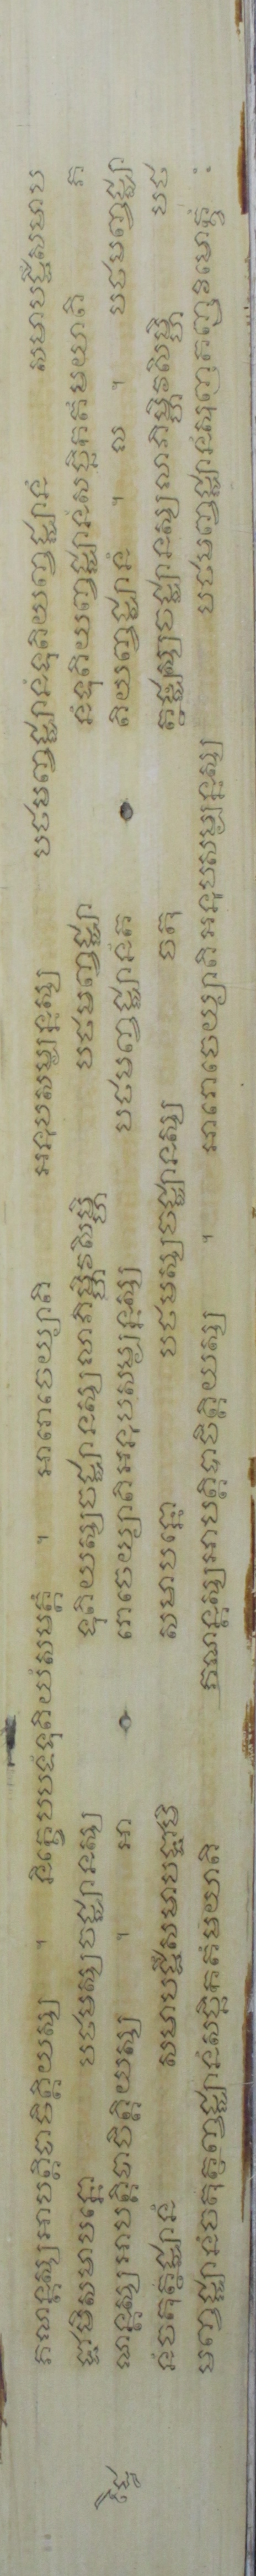 ភណន្តស្សអាបត្តិបាចិត្តិយស្ស ។ និក្ខេបបទំទុតិយំសមត្តំ ។ អារោចេយ្យាតិ អនុបសម្បន្នស្ស បឋមញ្ចជ្ឈានំទុតិយញ្ចជ្ឈានំ សមាបជ្ជឹសមាប
ជ្ជាមិសមាបន្នោ បឋមស្សចជ្ឈានស្ស ទុតិយស្សចជ្ឈានស្សលាភិម្ហិវសិម្ហិ បឋមញ្ចជ្ឈា នំទុតិយញ្ចជ្ឈានំសច្ឆិកតំមយាតិ ភ
ណន្តស្សអាបត្តិបាចិត្តិយស្ស ។ អា រោចេយ្យាតិអនុបសម្បន្នស្ស បឋមញ្ចជ្ឈានំត តិយញ្ចជ្ឈានំ ។ ល ។ បឋមញ្ចជ្ឈា
នំចតុត្ថំជ្ឈានំ សមាបជ្ជឹសមាបជ្ជាមិ សមាបន្នោ បឋមស្សចជ្ឈានស្ស ចតុ ត្ថស្សចជ្ឈានស្សលាភិម្ហិវសិម្ហិ បឋ
មញ្ចជ្ឈានំចតុត្ថញ្ចជ្ឈានំសច្ឆិកតំមយាតិ ភណន្តស្សអាបត្តិបាចិត្តិយស្ស ។ អារោចេយ្យាតិអនុបសម្បន្នស្ស បឋមញ្ចជ្ឈានំសុញ្ញតញ្ចវិមោក្ខំ